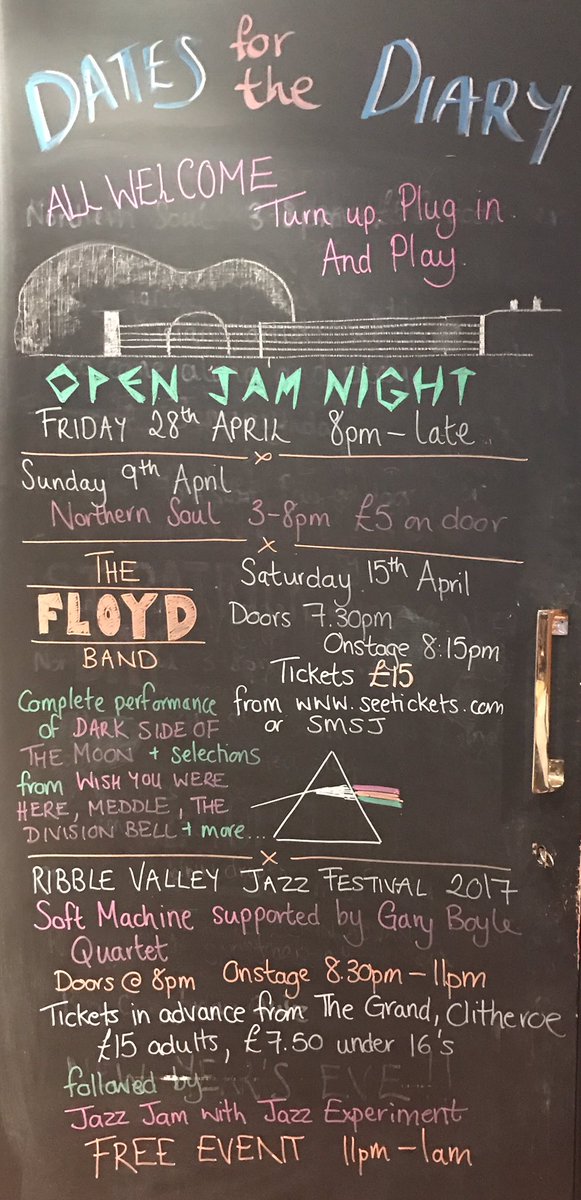 DATES for the DIARY
ALL WELCOME
Turn up. Plug in.
And Play.
OPEN JAM NIGHT
FRIDAY 28th APRIL 8pm - Late..
Sunday 9th April
Northern Soul 3-8pm £5 on door
THE
FLOYD
BAND
Saturday 15th April
Doors 7.30pm
Onstage 8:15pm
Tickets £15
from www.seetickets.com
or SMSJ
Complete performance
of DARK SIDE OF
THE MOON + selections
from WISH YOU WERE
HERE, MEDDLE, THE
DIVISION BELL + more...
RIBBLE VALLEY JAZZ FESTIVAL 2017
Soft Machine supported by Gary Boyle
Quartet
Doors @ 8pm Onstage 8.30pm - 11pm
Tickets in advance from The Grand, Clitheroe
£15 adults, £7.50 under 16's
followed by
Jazz Jam with Jazz Experiment
FREE EVENT 11pm - 1am